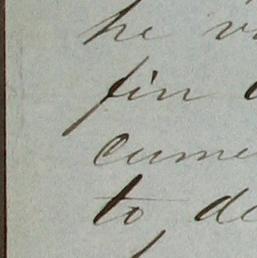 he
fin
cume
to de